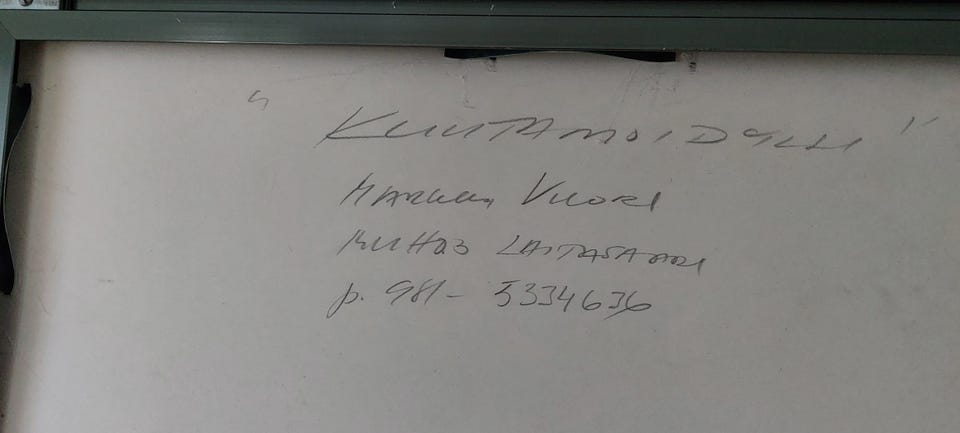 " KUUTAMOIDYLLI "
MARKKU VUORI
MUHOS LAITASAARI
p. 981- 5334636